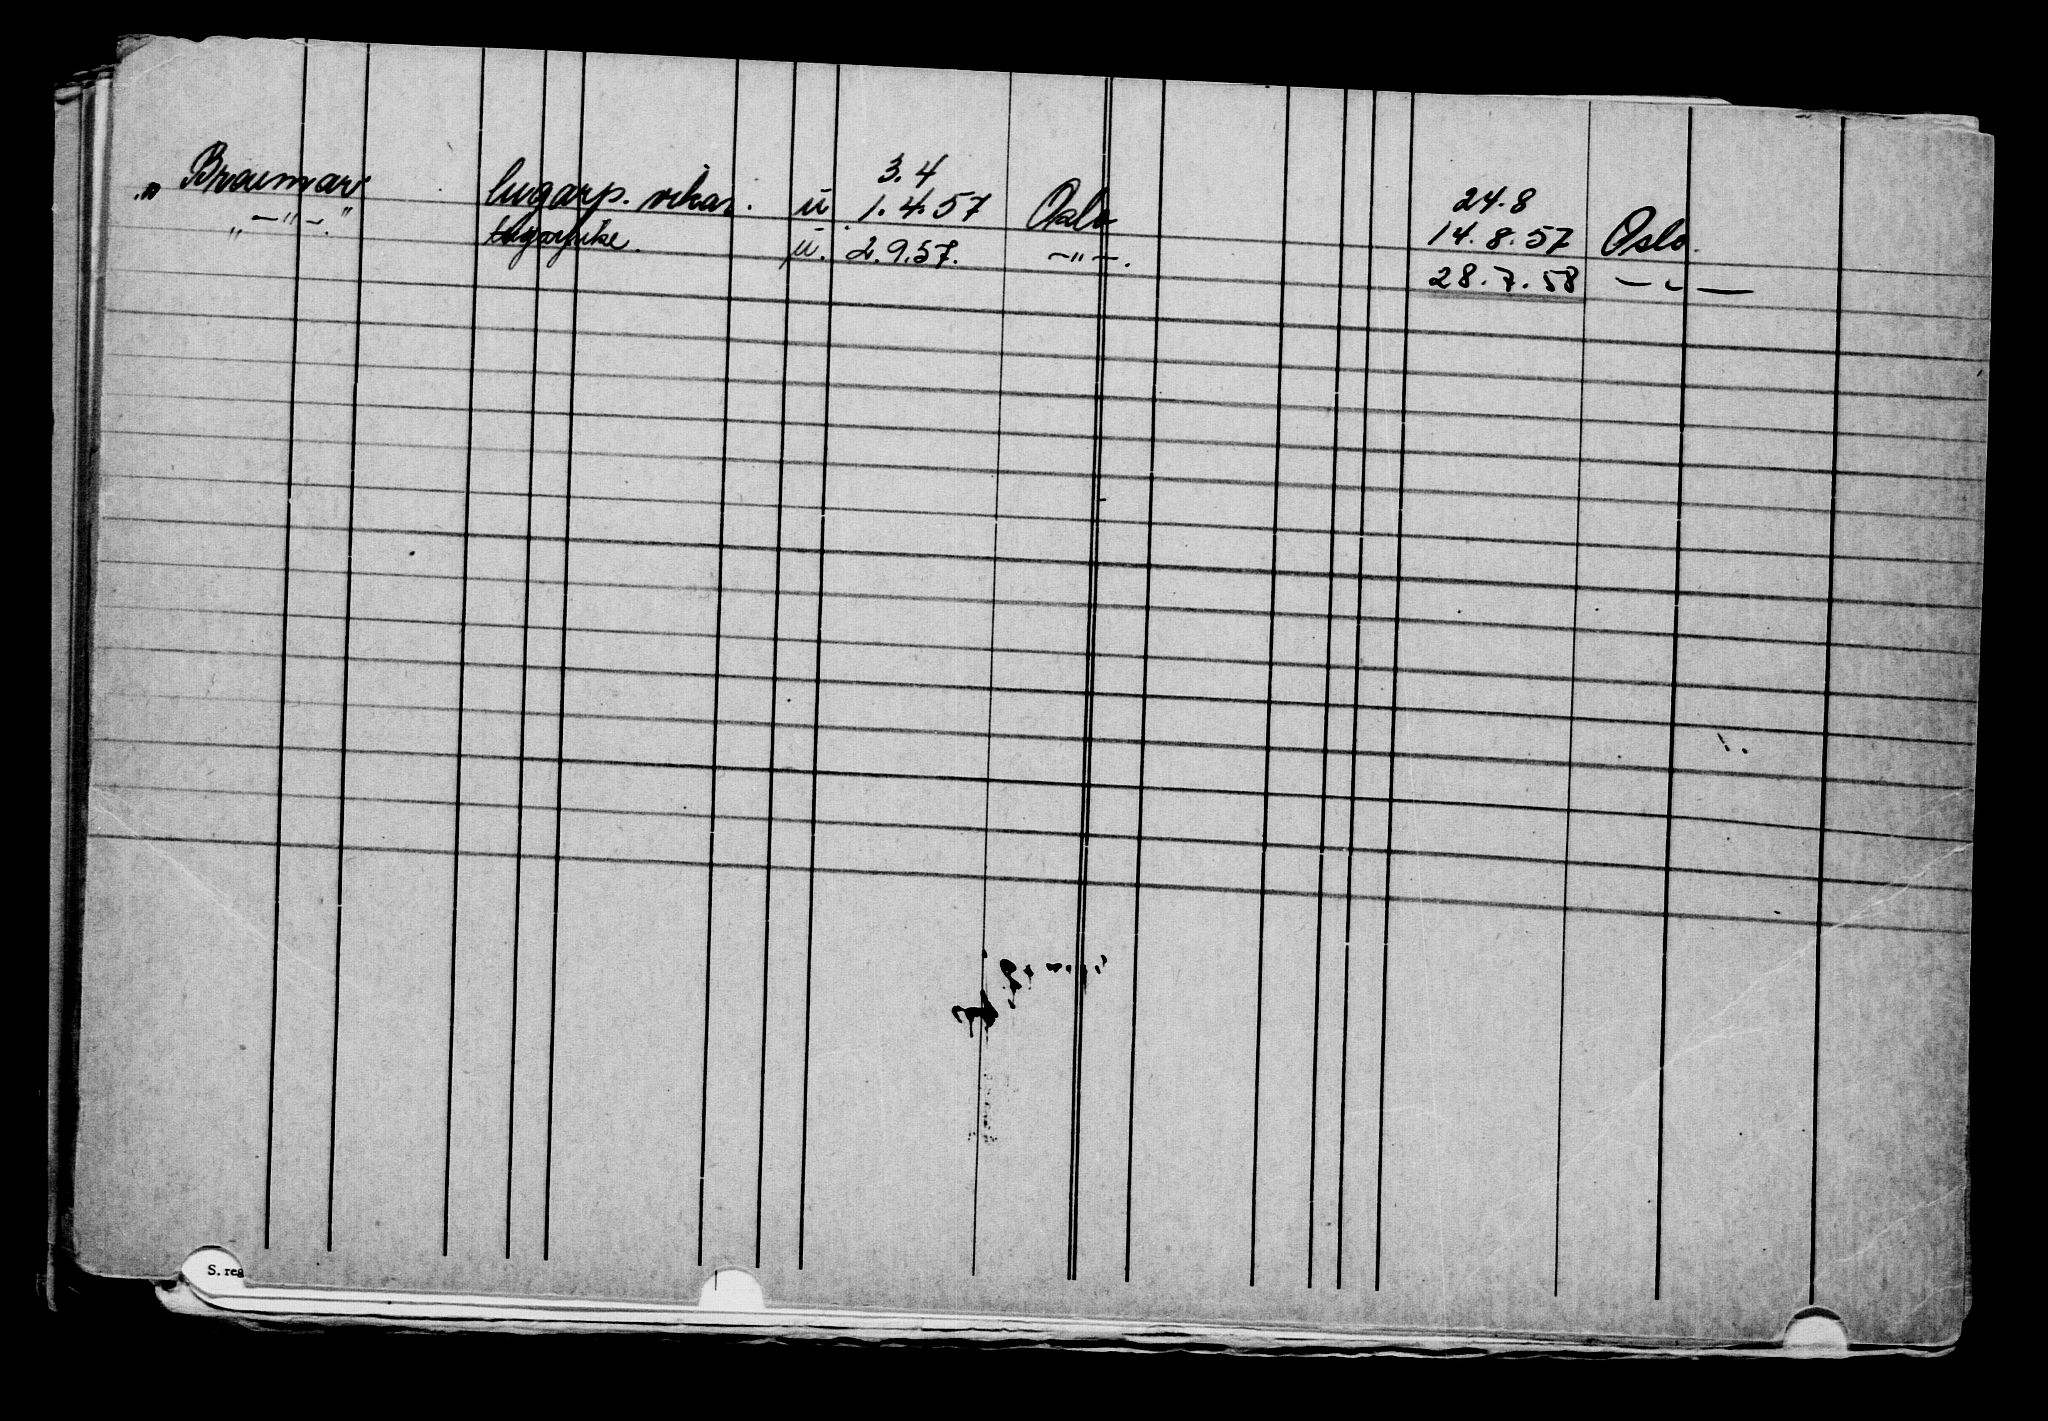 3.4 24.8
„ Braemar lugarp. vikar. u. 1.4.57 Oslo 14.8.57 Oslo.
„ —"—. " lugarpike. u. 2.9.57. —"—. 28.7.58 — " —
S. reg